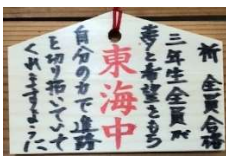 祈 全員合格
三年生全員が
夢と希望をもち
東海中
自分の力で進路
を切り拓いていて
くれますように